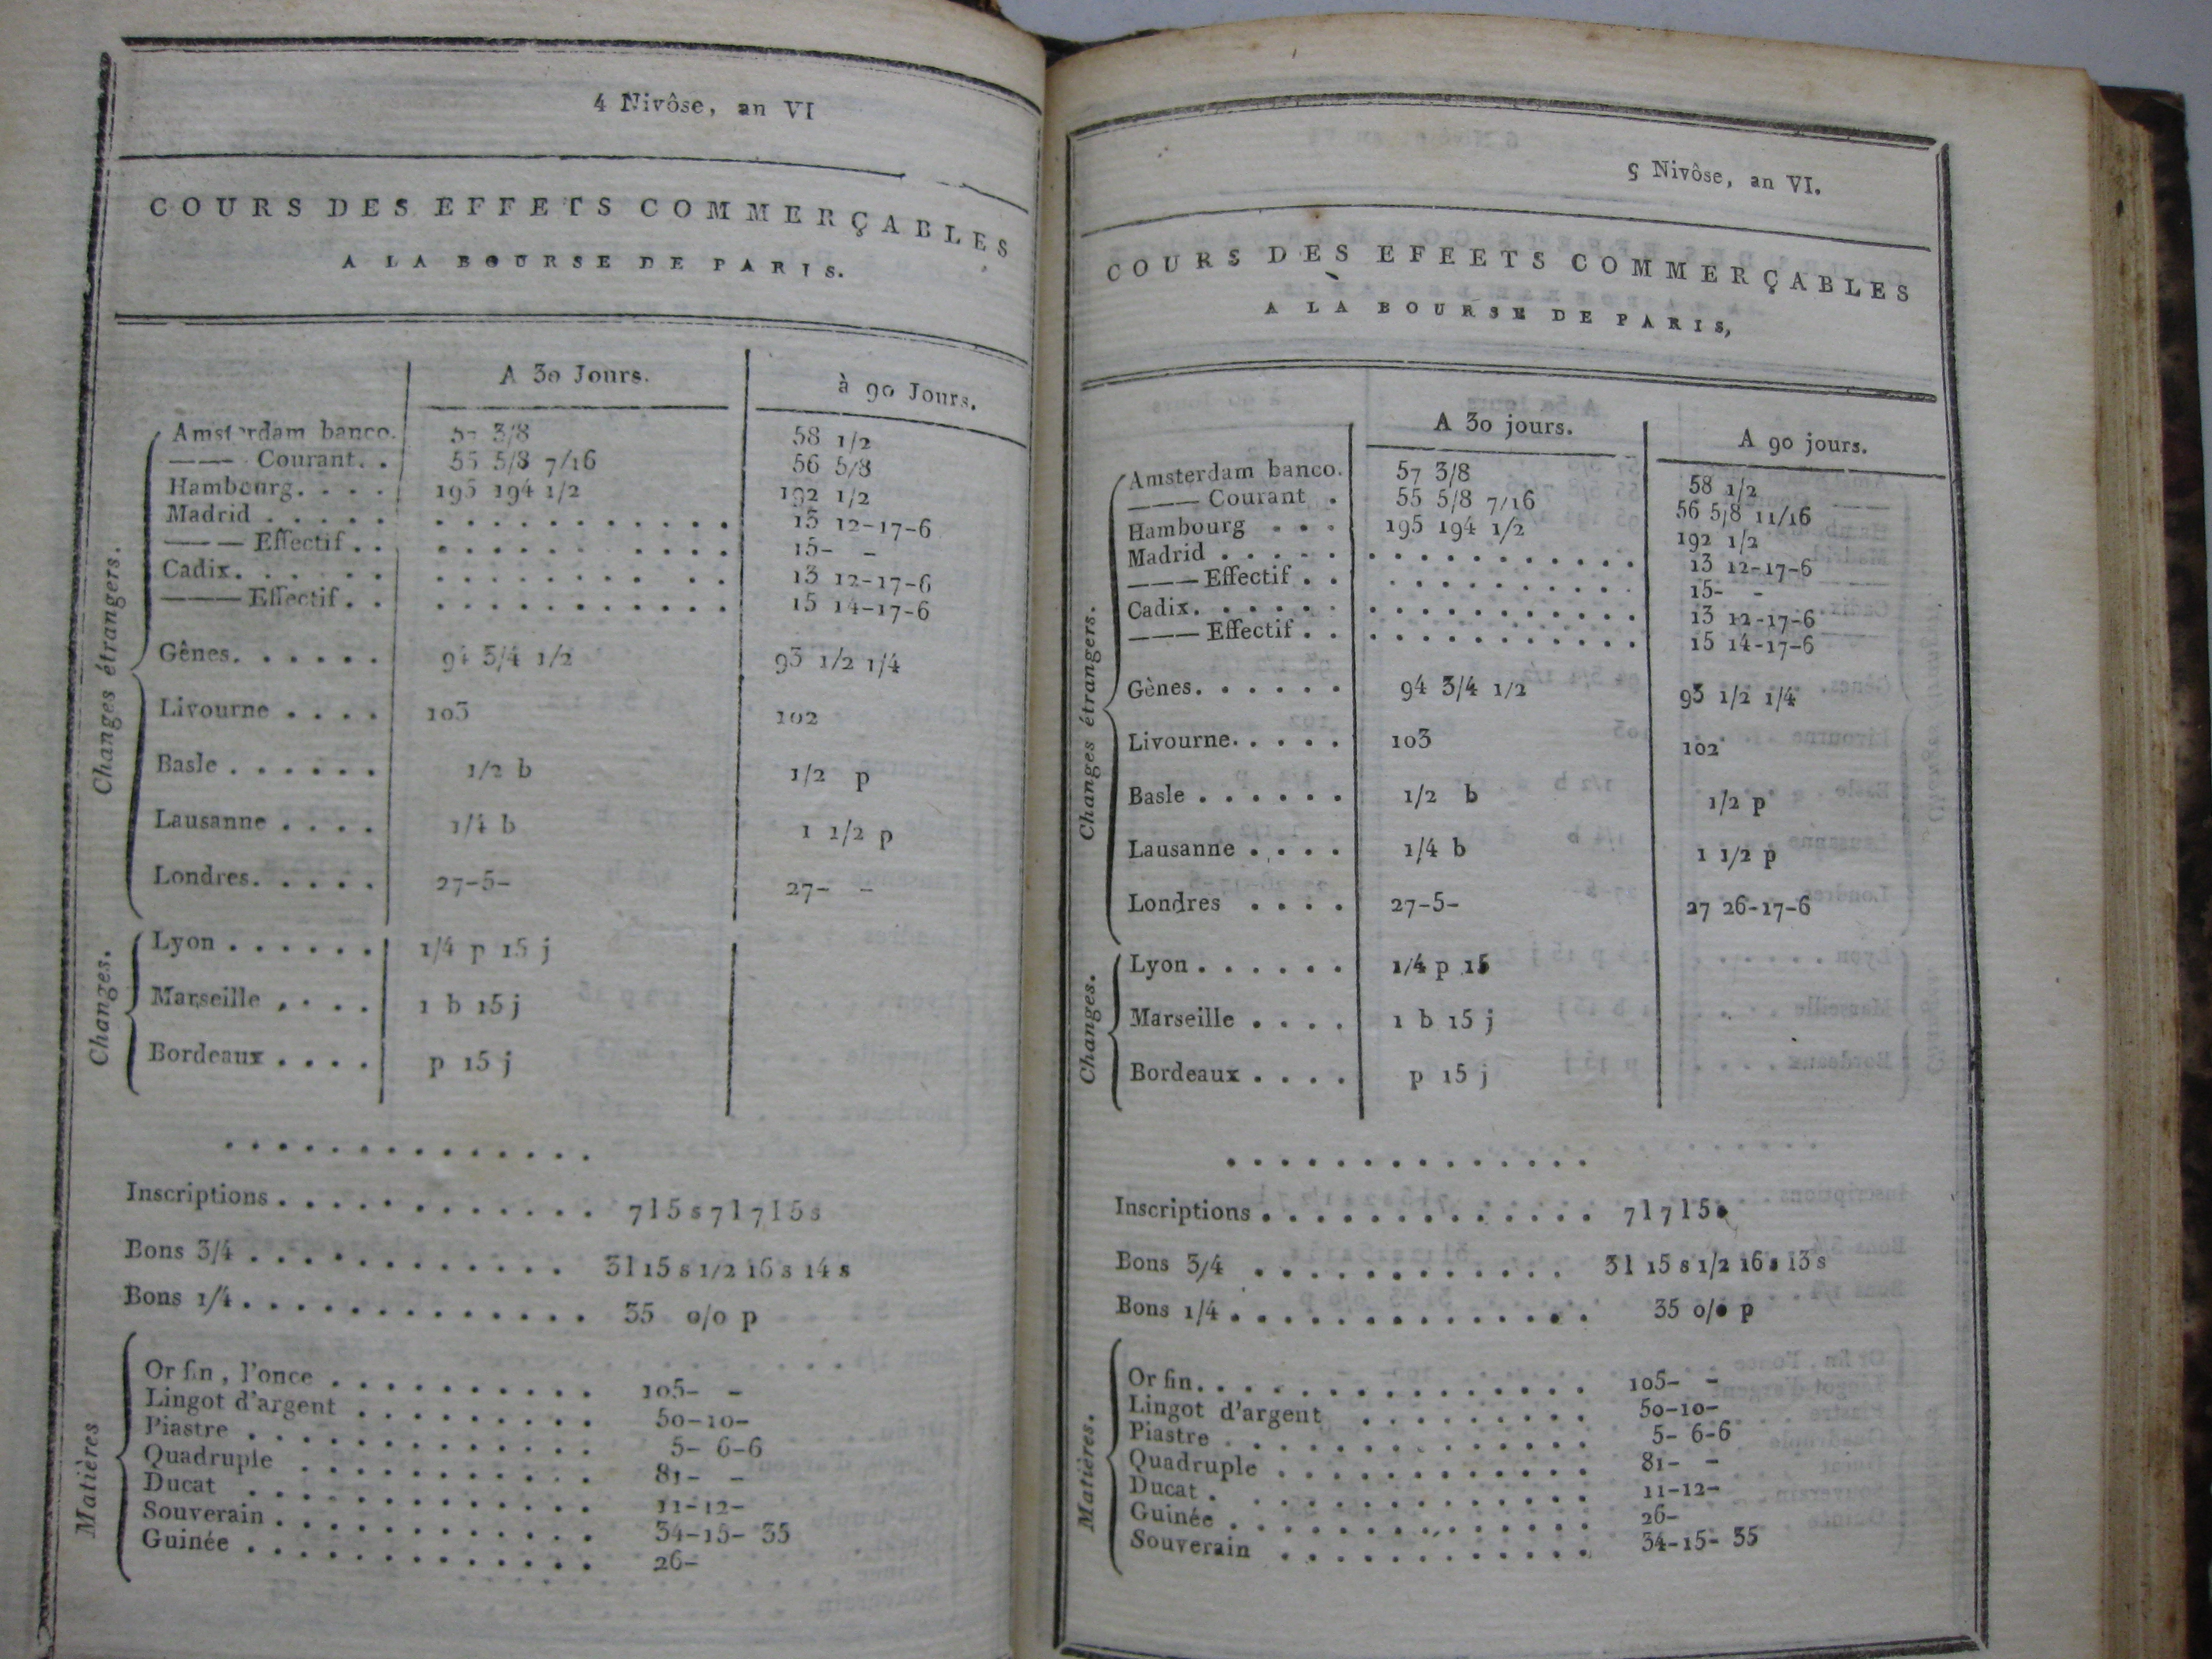 4 Nivôse, an VI
COURS DES EFFETS COMMERÇABLES
A LA BOURSE DE PARIS.
A 30 Jours. à 90 Jours.
Changes étrangers.
Amsterdam banco. 57 3/8 58 1/2
——— Courant. . 55 5/8 7/16 56 5/8
Hambourg. . . . 195 194 1/2 192 1/2
Madrid . . . . . . . . . . . . . . . . 13 12-17-6
——— Effectif . . . . . . . . . . . . . 15- -
Cadix. . . . . . . . . . . . . . . . 13 12-17-6
——— Effectif . . . . . . . . . . . . . 15 14-17-6
Gênes. . . . . . 94 3/4 1/2 93 1/2 1/4
Livourne . . . . 103 102
Basle . . . . . . 1/2 b 1/2 p
Lausanne . . . . 1/4 b 1 1/2 p
Londres. . . . . 27-5- 27- -
Changes.
Lyon . . . . . . 1/4 p 15 j
Marseille . . . . 1 b 15 j
Bordeaux . . . . p 15 j
. . . . . . . . . . . . . .
Inscriptions . . . . . . . . . . . . 7 l 5 s 7 l 7 l 5 s
Bons 3/4 . . . . . . . . . . . . 3 l 15 s 1/2 16 s 14 s
Bons 1/4 . . . . . . . . . . . . . . 35 o/o p
Matières
Or fin, l'once . . . . . . . . . . . 105- -
Lingot d'argent . . . . . . . . . . 50-10-
Piastre . . . . . . . . . . . . . . 5- 6-6
Quadruple . . . . . . . . . . . . 81- -
Ducat . . . . . . . . . . . . . . 11-12-
Souverain . . . . . . . . . . . . . 34-15- 35
Guinée . . . . . . . . . . . . . . 26-
5 Nivôse, an VI.
COURS DES EFEETS COMMERÇABLES
A LA BOURSE DE PARIS,
A 30 jours. A 90 jours.
Changes étrangers.
Amsterdam banco. 57 3/8 58 1/2
——— Courant . 55 5/8 7/16 56 5/8 11/16
Hambourg . . . 195 194 1/2 192 1/2
Madrid . . . . . . . . . . . . . . . . 13 12-17-6
——— Effectif . . . . . . . . . . . . . 15- -
Cadix. . . . . . . . . . . . . . . . . 13 12-17-6
——— Effectif . . . . . . . . . . . . . 15 14-17-6
Gènes. . . . . . 94 3/4 1/2 93 1/2 1/4
Livourne. . . . . 103 102
Basle . . . . . . 1/2 b 1/2 p
Lausanne . . . . 1/4 b 1 1/2 p
Londres . . . . 27-5- 27 26-17-6
Changes.
Lyon . . . . . . 1/4 p 15
Marseille . . . . 1 b 15 j
Bordeaux . . . . p 15 j
. . . . . . . . . . . . . .
Inscriptions . . . . . . . . . . . . . 7 l 7 l 5 s
Bons 3/4 . . . . . . . . . . . . 3 l 15 s 1/2 16 s 13 s
Bons 1/4 . . . . . . . . . . . . . . 35 o/o p
Matières.
Or fin. . . . . . . . . . . . . . . 105- -
Lingot d'argent . . . . . . . . . 50-10-
Piastre . . . . . . . . . . . . . . 5- 6-6
Quadruple . . . . . . . . . . . . 81- -
Ducat . . . . . . . . . . . . . . . 11-12-
Guinée . . . . . . . . . . . . . . 26-
Souverain . . . . . . . . . . . . 34-15- 35